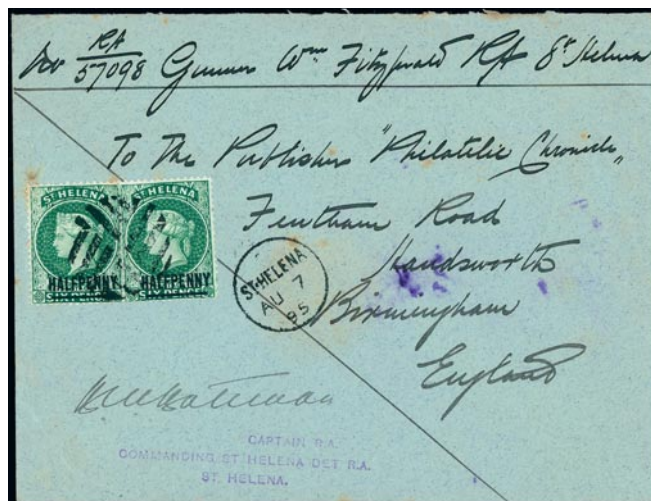 No RA/57098 Gunner Wm Fitzgerald RA St Helena
To The Publisher "Philatelic Chronicle"
Fentham Road
Handsworth
Birmingham
England
ST HELENA ST HELENA
HALFPENNY HALFPENNY
SIX PENCE SIX PENCE
ST. HELENA
AU 7
95
CAPTAIN R.A.
COMMANDING ST HELENA DET R.A.
ST. HELENA.